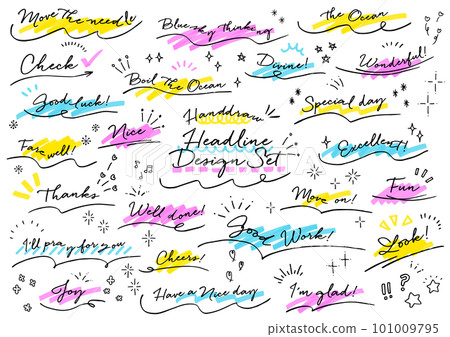 Move The needle
Blue Sky Thinking
The Ocean
Check
Boil The Ocean
Divine!
Wonderful!
Good luck!
Handdraw
Special day
Nice
Headline
Farewell!
Design Set
Excellent!
Thanks
Well done!
Move on!
Fun
I'll pray for you
Cheers!
Good Work!
Look!
Joy
Have a Nice day
I'm glad!
!! ?
101009795